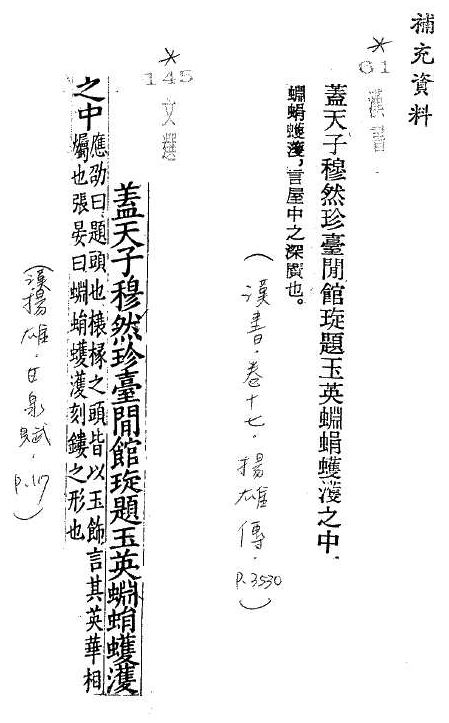 補充資料
*
61 漢書
蓋天子穆然珍臺閒館琁題玉英蜵蜎蠖濩之中,
蜵蜎蠖濩,言屋中之深廣也。
(漢書.卷十七.揚雄傳.P.3530)
*
145 文選
蓋天子穆然珍臺閒館琁題玉英蜵蜎蠖濩
之中應劭曰題頭也榱椽之頭皆以玉飾言其英華相
爥也張晏曰蜵蜎蠖濩刻鏤之形也
(漢揚雄.甘泉賦.P.117)